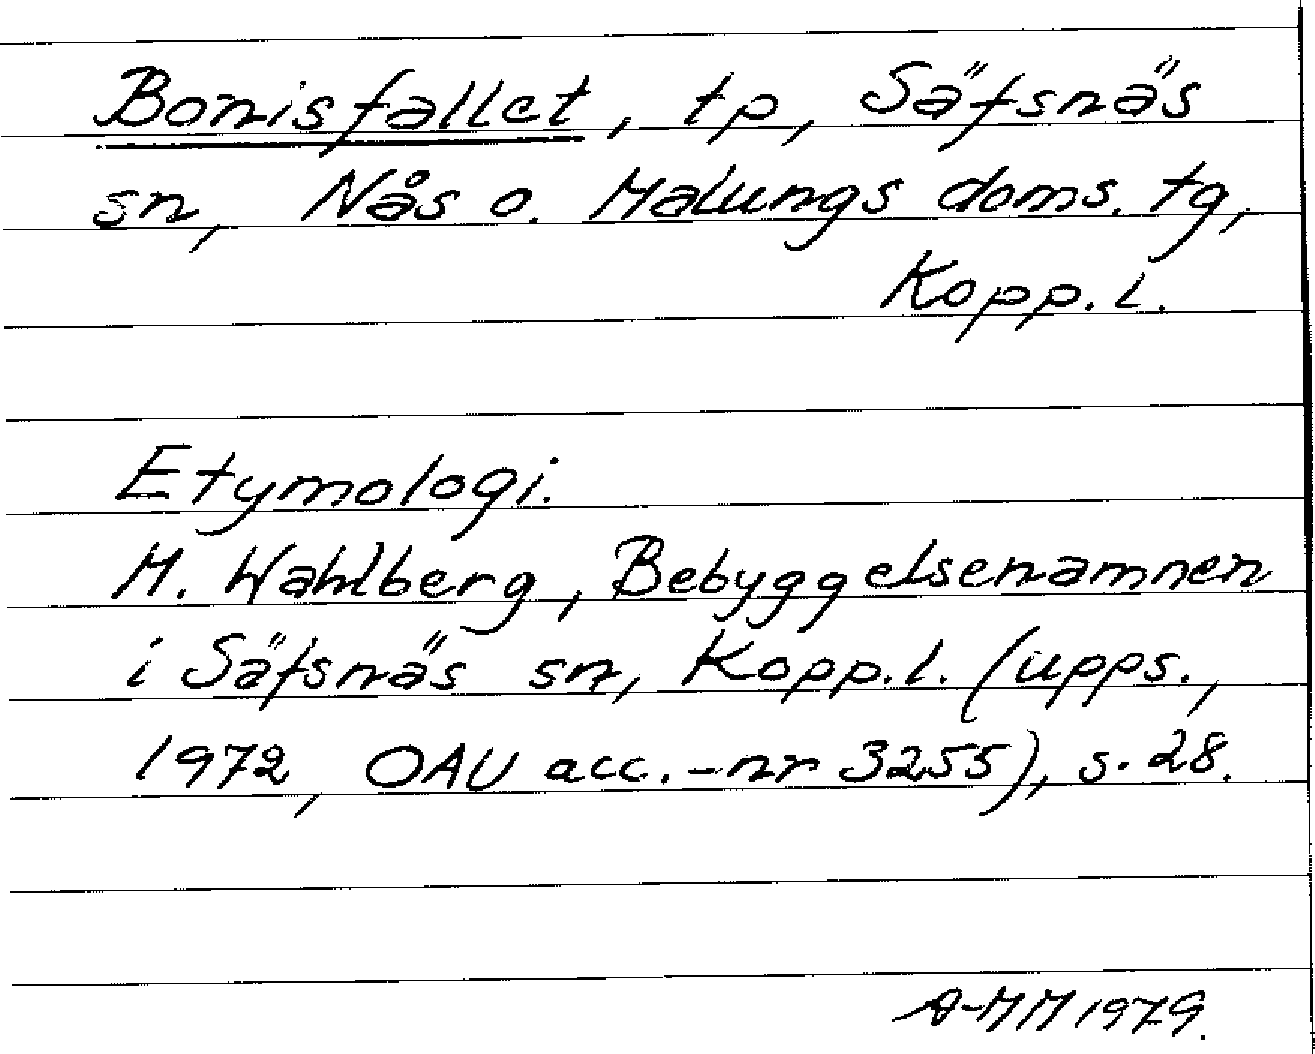 Bonisfallet, tp, Säfsnäs
sn, Nås o. Malungs doms. tg,
Kopp. l.
Etymologi.
M. Wahlberg, Bebyggelsenamnen
i Säfsnäs sn, Kopp. l. (upps.,
1972, OAU acc.-nr 3255), s. 28.
A-MM 1979.